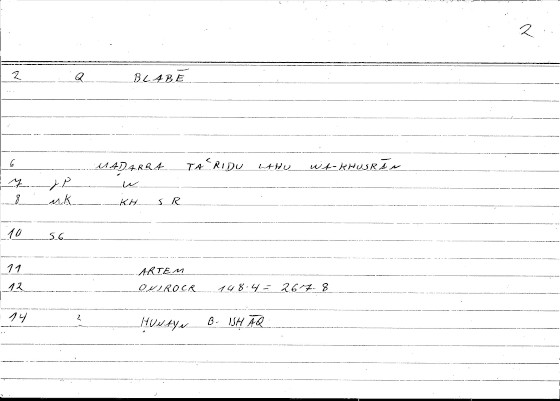 2
2 Q BLABĒ
6 MAḌARRA TAʿRIḌU LAHU WA-KHUSRĀN
7 JP W
8 MK KH S R
10 SG
11 ARTEM
12 ONIROCR 148.4 = 267.8
14 2 ḤUNAYN B. ISḤĀQ